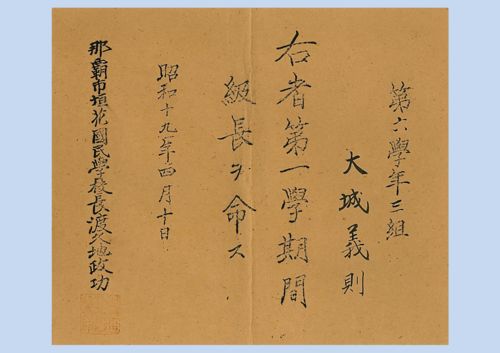 第六學年三組
大城義則
右者第一學期間
級長ヲ命ス
昭和十九年四月十日
那霸市垣花國民學校長渡久地政功